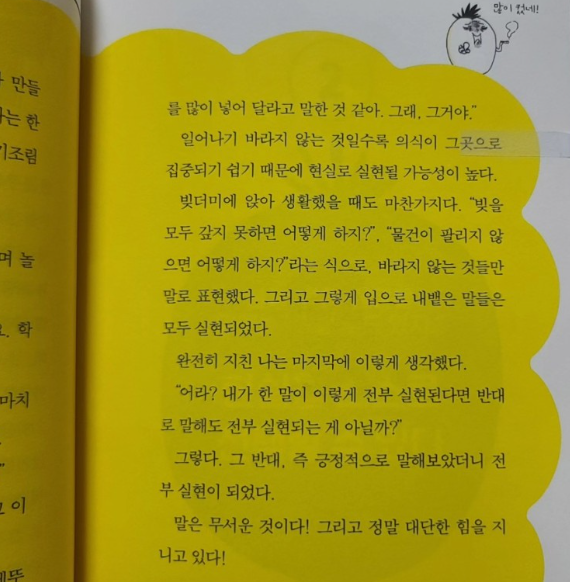 많이 컸네!
만들
는 한
기조림
며 놀
학
마치
이
를 많이 넣어 달라고 말한 것 같아. 그래, 그거야."
일어나기 바라지 않는 것일수록 의식이 그곳으로
집중되기 쉽기 때문에 현실로 실현될 가능성이 높다.
빚더미에 앉아 생활했을 때도 마찬가지다. "빚을
모두 갚지 못하면 어떻게 하지?", "물건이 팔리지 않
으면 어떻게 하지?"라는 식으로, 바라지 않는 것들만
말로 표현했다. 그리고 그렇게 입으로 내뱉은 말들은
모두 실현되었다.
완전히 지친 나는 마지막에 이렇게 생각했다.
"어라? 내가 한 말이 이렇게 전부 실현된다면 반대
로 말해도 전부 실현되는 게 아닐까?"
그렇다. 그 반대, 즉 긍정적으로 말해보았더니 전
부 실현이 되었다.
말은 무서운 것이다! 그리고 정말 대단한 힘을 지
니고 있다!